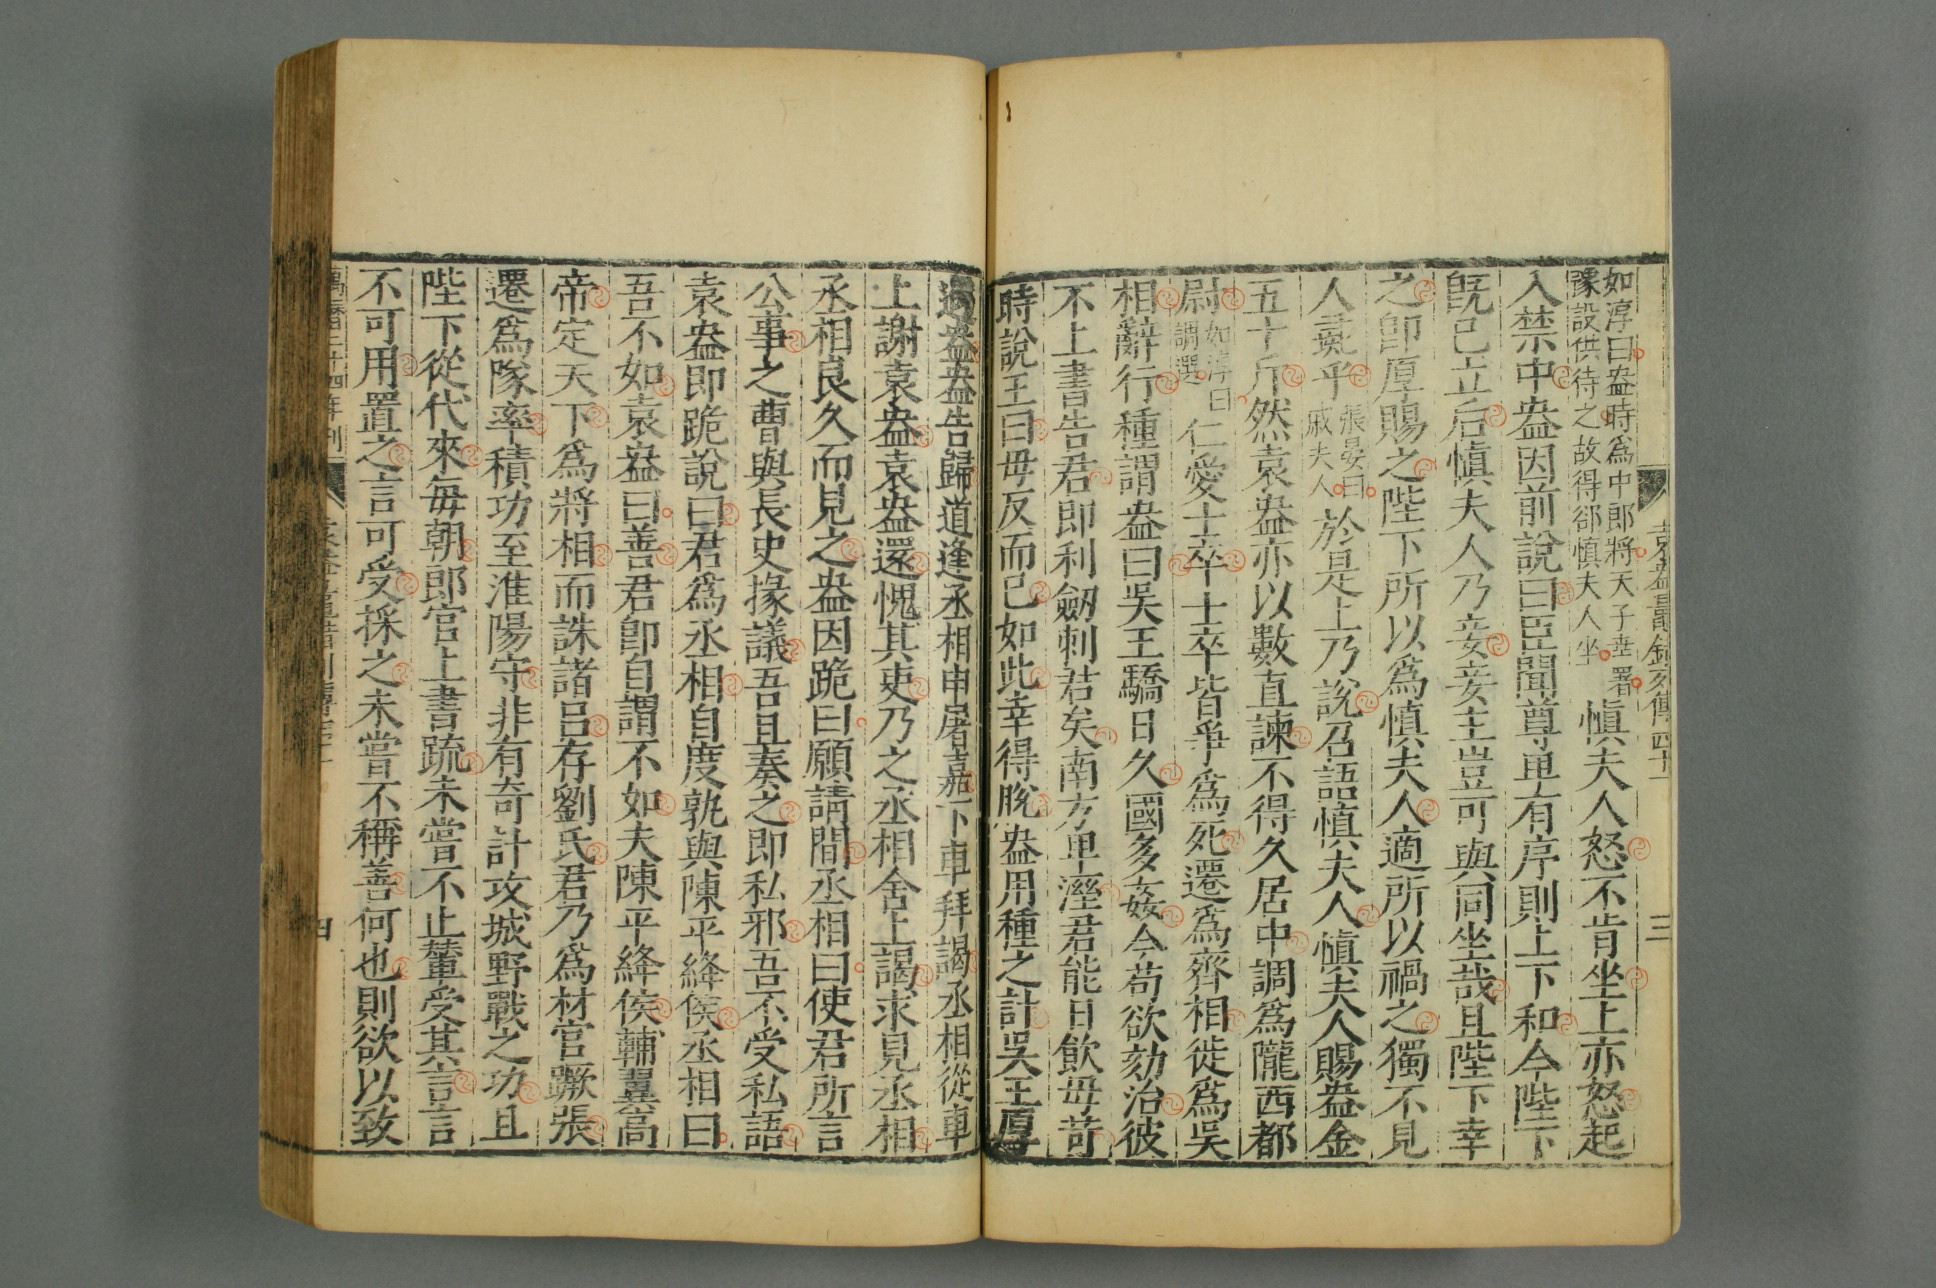 袁盎鼂錯列傳四十
三
如淳曰盎時爲中郎將天子幸署
豫設供待之故得郤慎夫人坐
慎夫人怒不肯坐上亦怒起
入禁中盎因前說曰臣聞尊卑有序則上下和今陛下
既已立后慎夫人乃妾妾主豈可與同坐哉且陛下幸
之卽厚賜之陛下所以爲慎夫人適所以禍之獨不見
人彘乎
張晏曰
戚夫人
於是上乃說召語慎夫人慎夫人賜盎金
五十斤然袁盎亦以數直諫不得久居中調爲隴西都
尉
如淳曰
調選
仁愛士卒士卒皆爭爲死遷爲齊相徙爲吳
相辭行種謂盎曰吳王驕日久國多姦今苟欲劾治彼
不上書告君卽利劒刺君矣南方卑溼君能日飲毋苛
時說王曰毋反而已如此幸得脫盎用種之計吳王厚
遇盎盎告歸道逢丞相申屠嘉下車拜謁丞相從車
上謝袁盎袁盎還愧其吏乃之丞相舍上謁求見丞相
丞相良久而見之盎因跪曰願請間丞相曰使君所言
公事之曹與長史掾議吾且奏之即私邪吾不受私語
袁盎即跪說曰君爲丞相自度孰與陳平絳侯丞相曰
吾不如袁盎曰善君卽自謂不如夫陳平絳侯輔翼高
帝定天下爲將相而誅諸呂存劉氏君乃爲材官蹶張
遷爲隊率積功至淮陽守非有奇計攻城野戰之功且
陛下從代來每朝郎官上書疏未嘗不止輦受其言言
不可用置之言可受採之未嘗不稱善何也則欲以致
萬曆二十四年刊
四